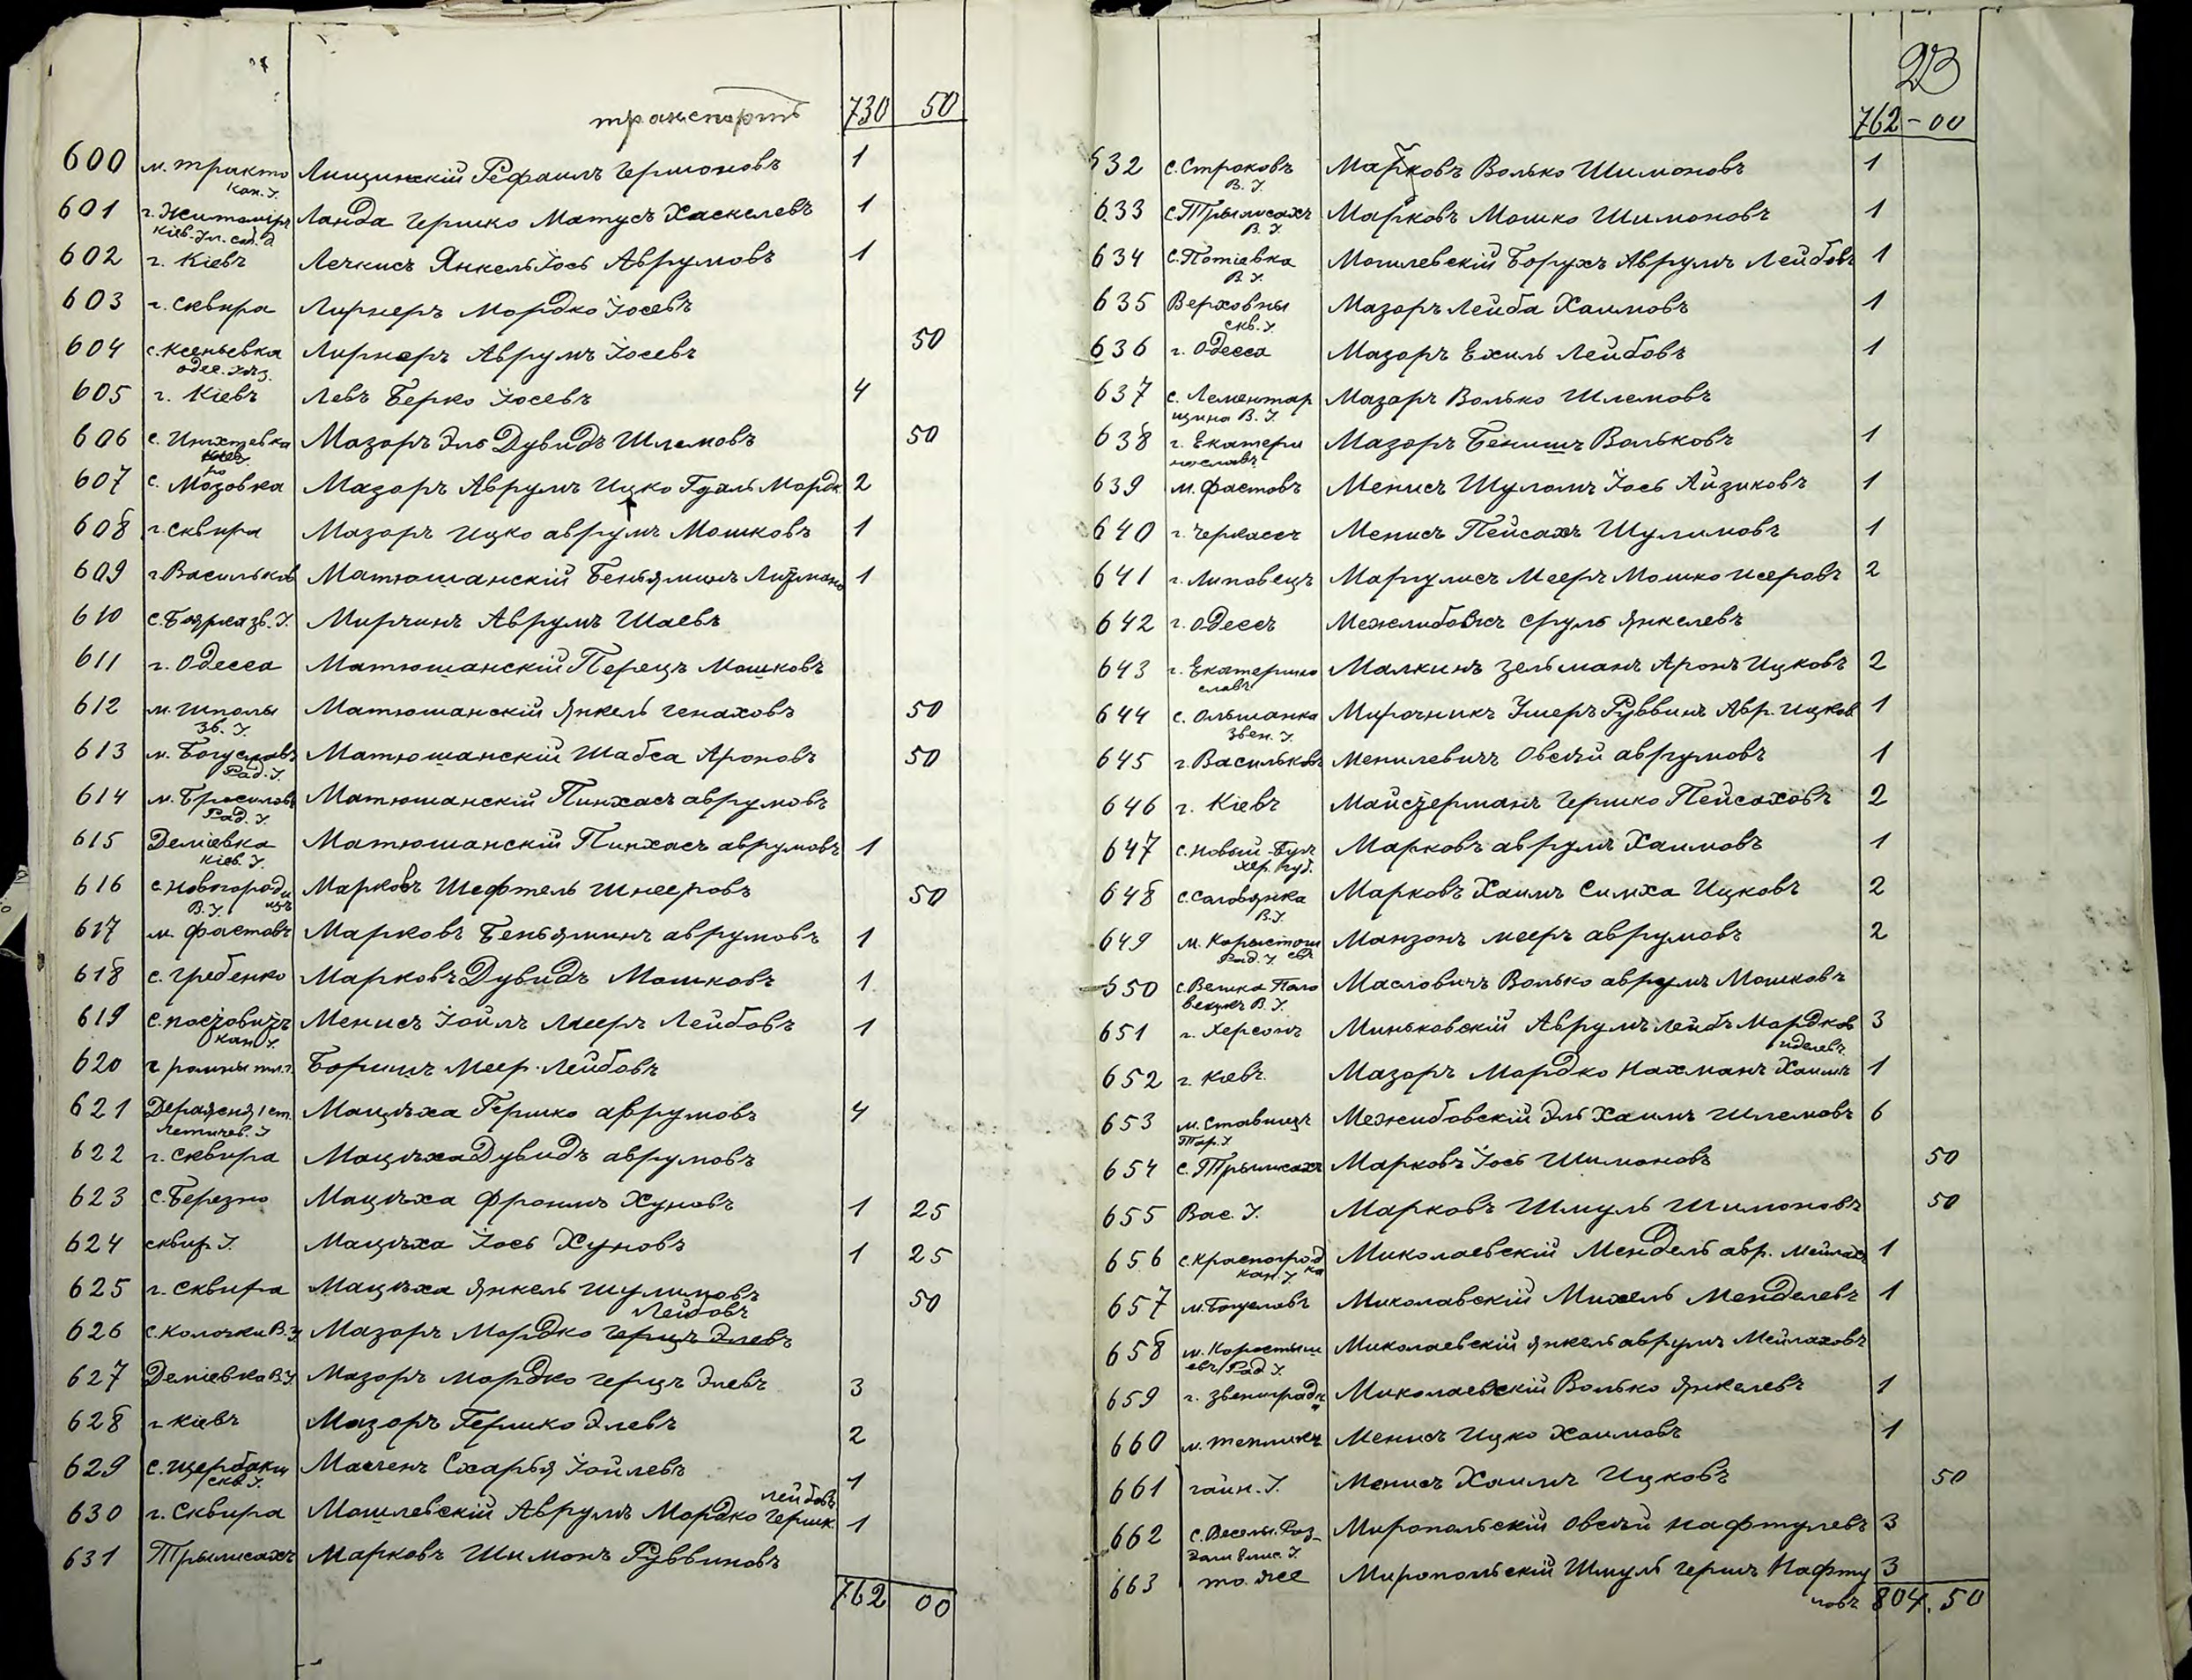 транспортъ 730 50
600 м. Тракто Лищинскій Рефаилъ Гершоновъ 1
Кан. У.
601 г. Житоміръ Ланда Гершко Матусъ Хаскелевъ 1
602 г. Кіевъ Лечкисъ Янкель Іось Аврумовъ 1
603 г. Сквира Лирнеръ Мордко Іосевъ
604 с. Ксеньевка Лирнеръ Аврумъ Іосевъ 50
605 г. Кіевъ Левъ Берко Іосевъ 4
606 с. Мазоръ Эль Дувидъ Шлемовъ 50
607 с. Мазоръ Аврумъ Ицко Гдаль Мордк 2
608 г. Сквира Мазоръ Ицко аврумъ Мошковъ 1
609 г. Васильков Матюшанскій Беньяминъ 1
610 с. Боярка зв. У. Мирчинъ Аврумъ Шаевъ
611 г. Одесса Матюшанскій Перецъ Мошковъ
612 м. Шполы Матюшанскій Янкель Генаховъ 50
Зв. У.
613 м. Богуславъ Матюшанскій Шабса Ароновъ 50
614 м. Брусиловъ Матюшанскій Пинхасъ аврумовъ
Рад. У.
615 Деміевка Матюшанскій Пинхасъ аврумовъ 1
Кіев. У.
616 с. Новогородицъ Марковъ Шефтель Шнееровъ 50
В. У.
617 м. Фастовъ Марковъ Беньяминъ аврумовъ 1
618 с. Гребенко Марковъ Дувидъ Мошковъ 1
619 с. Менисъ Іойлъ Мееръ Лейбовъ 1
Кан. У.
620 г. Боришъ Меер. Лейбовъ
621 Деражня ст. Мацѣха Гершко аврумовъ 4
Летичев. У
622 г. Сквира Мацѣха Дувидъ аврумовъ
623 с. Березно Мацѣха Фроимъ Хуновъ 1 25
624 сквир У. Мацѣха Іось Хуновъ 1 25
625 г. Сквира Мацѣха Янкель Шулимовъ 50
Лейбовъ
626 с. Колочки В. У. Мазоръ Мордко Герцъ Элевъ
627 Деміевка В. У. Мазоръ Мордко Герцъ Элевъ 3
628 г. Кіевъ Мазоръ Гершко Элевъ 2
629 с. Щербаки Іойлевъ 1
скв. У.
лейбовъ
630 г. Сквира Аврумъ Мордко Гершк. 1
631 Трылисахъ Марковъ Шимонъ Руввиновъ
762 00
23
762-00
632 с. Строковъ Марковъ Волько Шимоновъ 1
В. У.
633 с. Трылисахъ Марковъ Мошко Шимоновъ 1
В. У.
634 с. Потіевка Могилевскій Борухъ Аврумъ Лейбовъ 1
В. У.
635 Верховны Мазоръ Лейба Хаимовъ 1
скв. У.
636 г. Одесса Мазоръ Ехиль Лейбовъ 1
637 с. Лементар Мазоръ Волько Шлемовъ
щина В. У.
638 г. Екатери Мазоръ Бенишъ Вольковъ 1
нославъ
639 м. Фастовъ Менисъ Шуломъ Іось Айзиковъ 1
640 г. Черкассъ Менисъ Пейсахъ Шулимовъ 1
641 г. Липовецъ Маргулисъ Мееръ Мошко 2
642 г. Одессъ Сруль Янкелевъ
643 г. Екатерино Малкинъ Зельманъ Аронъ Ицковъ 2
славъ
644 с. Ольшанка Мирочникъ Ушеръ Руввинъ Авр. Ицков. 1
Звен. У.
645 г. Васильковъ Менилевичъ Овсѣй аврумовъ 1
646 г. Кіевъ Гершко Пейсаховъ 2
647 с. Новый Бугъ Марковъ аврумъ Хаимовъ 1
Хер. Губ.
648 с. Соловьянка Марковъ Хаимъ Симха Ицковъ 2
В. У.
649 м. Коростыш Манзонъ мееръ аврумовъ 2
Рад. У. евъ
650 с. Велика Поло Масловичъ Волько аврумъ Мошковъ
вецкъ В. У.
651 г. Херсонъ Миньковскій Аврумъ Лейбъ Мордков 3
иделевъ
652 г. Кіевъ. Мазоръ Мордко Нахманъ Хаимъ 1
653 м. Ставищъ Межибовскій Эль Хаимъ Шлемовъ 6
Тар. У
654 с. Трылисахъ Марковъ Іось Шимоновъ 50
655 Вас. У. Марковъ Шмуль Шимоновъ 50
656 с. Красногродка Миколаевскій Мендель авр. Мейлах 1
Кан. У.
657 м. Богуславъ Миколавскій Михель Менделевъ 1
658 м. Коростыш Миколаевскій Янкель аврумъ Мейлаховъ
евъ Рад. У.
659 г. Звенигродк Миколаевскій Волько Янкелевъ 1
660 м. Тепликъ Менисъ Ицко Хаимовъ 1
661 гайн. У. Менисъ Хаимъ Ицковъ 50
662 с. Миропольскій Овсѣй Нафтулевъ 3
663 то же Миропольскій Шмуль Гершъ Нафту 3
ловъ 804.50